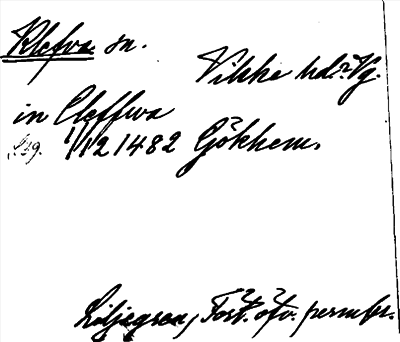 Klefva sn.
Vilske hd. Vg.
in Cleffwa
1/12 1482 Gökhem.
Liljegren, Fört. öfv. permbr.